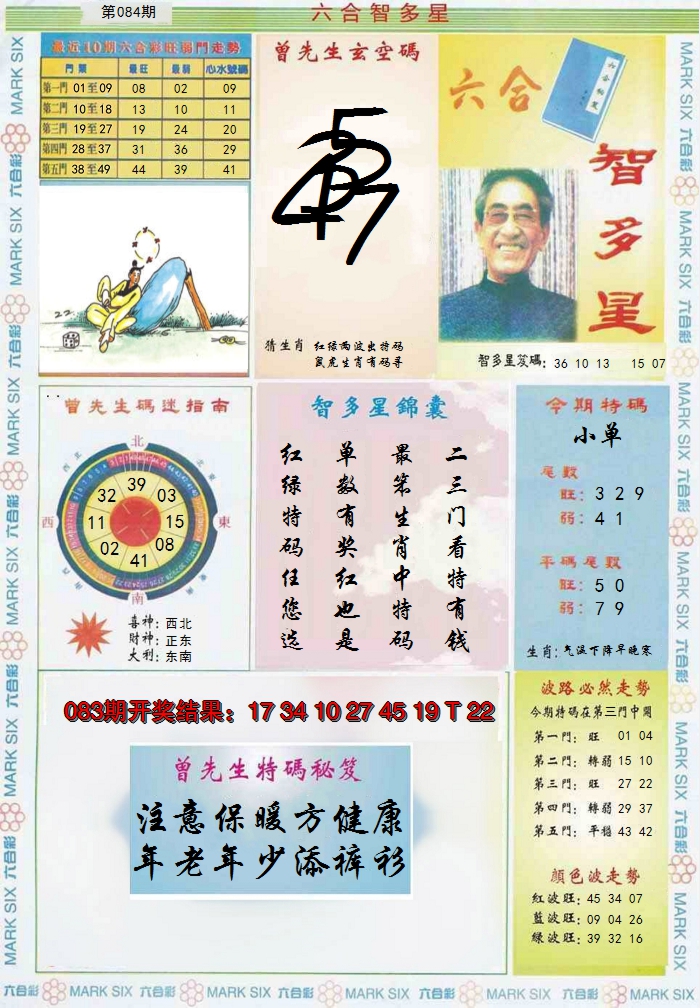 第084期
六合智多星
最近10期六合彩旺弱門走勢
門票 最旺 最弱 心水號碼
第一門 01至09 08 02 09
第二門 10至18 13 10 11
第三門 19至27 19 24 20
第四門 28至37 31 36 29
第五門 38至49 44 39 41
曾先生玄空碼
猜生肖 红绿两波出特码
鼠虎生肖有码寻
六合
六合秘笈
智多星
智多星笈碼: 36 10 13 15 07
曾先生碼迷指南
北
西
東
南
39
32 03
11 15
02 08
41
喜神: 西北
财神: 正东
大利: 东南
智多星錦囊
二三门看特有钱
最笨生肖中特码
单数有奖红也是
红绿特码任您选
今期特碼
小单
尾數
旺: 3 2 9
弱: 4 1
平碼尾數
旺: 5 0
弱: 7 9
生肖: 气温下降早晚寒
083期开奖结果: 17 34 10 27 45 19 T 22
曾先生特碼秘笈
注意保暖方健康
年老年少添裤衫
波路必然走勢
今期特碼在第三門中開
第一門: 旺 01 04
第二門: 轉弱 15 10
第三門: 旺 27 22
第四門: 轉弱 29 37
第五門: 平穩 43 42
顏色波走勢
紅波旺: 45 34 07
藍波旺: 09 04 26
綠波旺: 39 32 16
六合彩 MARK SIX